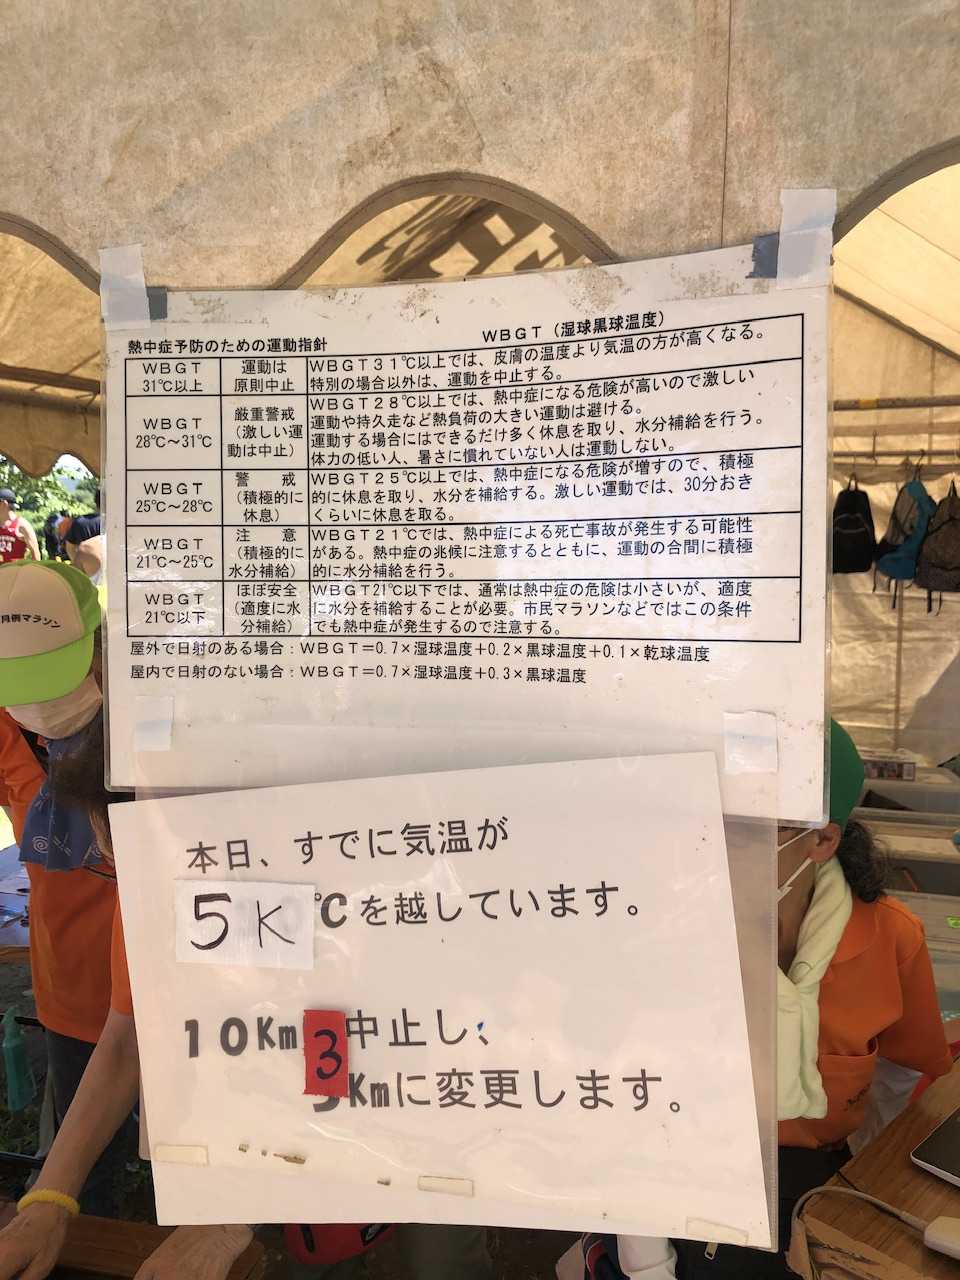 熱中症予防のための運動指針
WBGT（湿球黒球温度）
WBGT
31℃以上
運動は
原則中止
WBGT31℃以上では、皮膚の温度より気温の方が高くなる。
特別の場合以外は、運動を中止する。
WBGT
28℃～31℃
厳重警戒
（激しい運
動は中止）
WBGT28℃以上では、熱中症になる危険が高いので激しい
運動や持久走など熱負荷の大きい運動は避ける。
運動する場合にはできるだけ多く休息を取り、水分補給を行う。
体力の低い人、暑さに慣れていない人は運動しない。
WBGT
25℃～28℃
警　戒
（積極的に
休息）
WBGT25℃以上では、熱中症になる危険が増すので、積極
的に休息を取り、水分を補給する。激しい運動では、30分おき
くらいに休息を取る。
WBGT
21℃～25℃
注　意
（積極的に
水分補給）
WBGT21℃では、熱中症による死亡事故が発生する可能性
がある。熱中症の兆候に注意するとともに、運動の合間に積極
的に水分補給を行う。
WBGT
21℃以下
ほぼ安全
（適度に水
分補給）
WBGT21℃以下では、通常は熱中症の危険は小さいが、適度
に水分を補給することが必要。市民マラソンなどではこの条件
でも熱中症が発生するので注意する。
屋外で日射のある場合：WBGT＝0.7×湿球温度＋0.2×黒球温度＋0.1×乾球温度
屋内で日射のない場合：WBGT＝0.7×湿球温度＋0.3×黒球温度
月例マラソン
24
本日、すでに気温が
5K℃を越しています。
10Km 中止し、
3Kmに変更します。